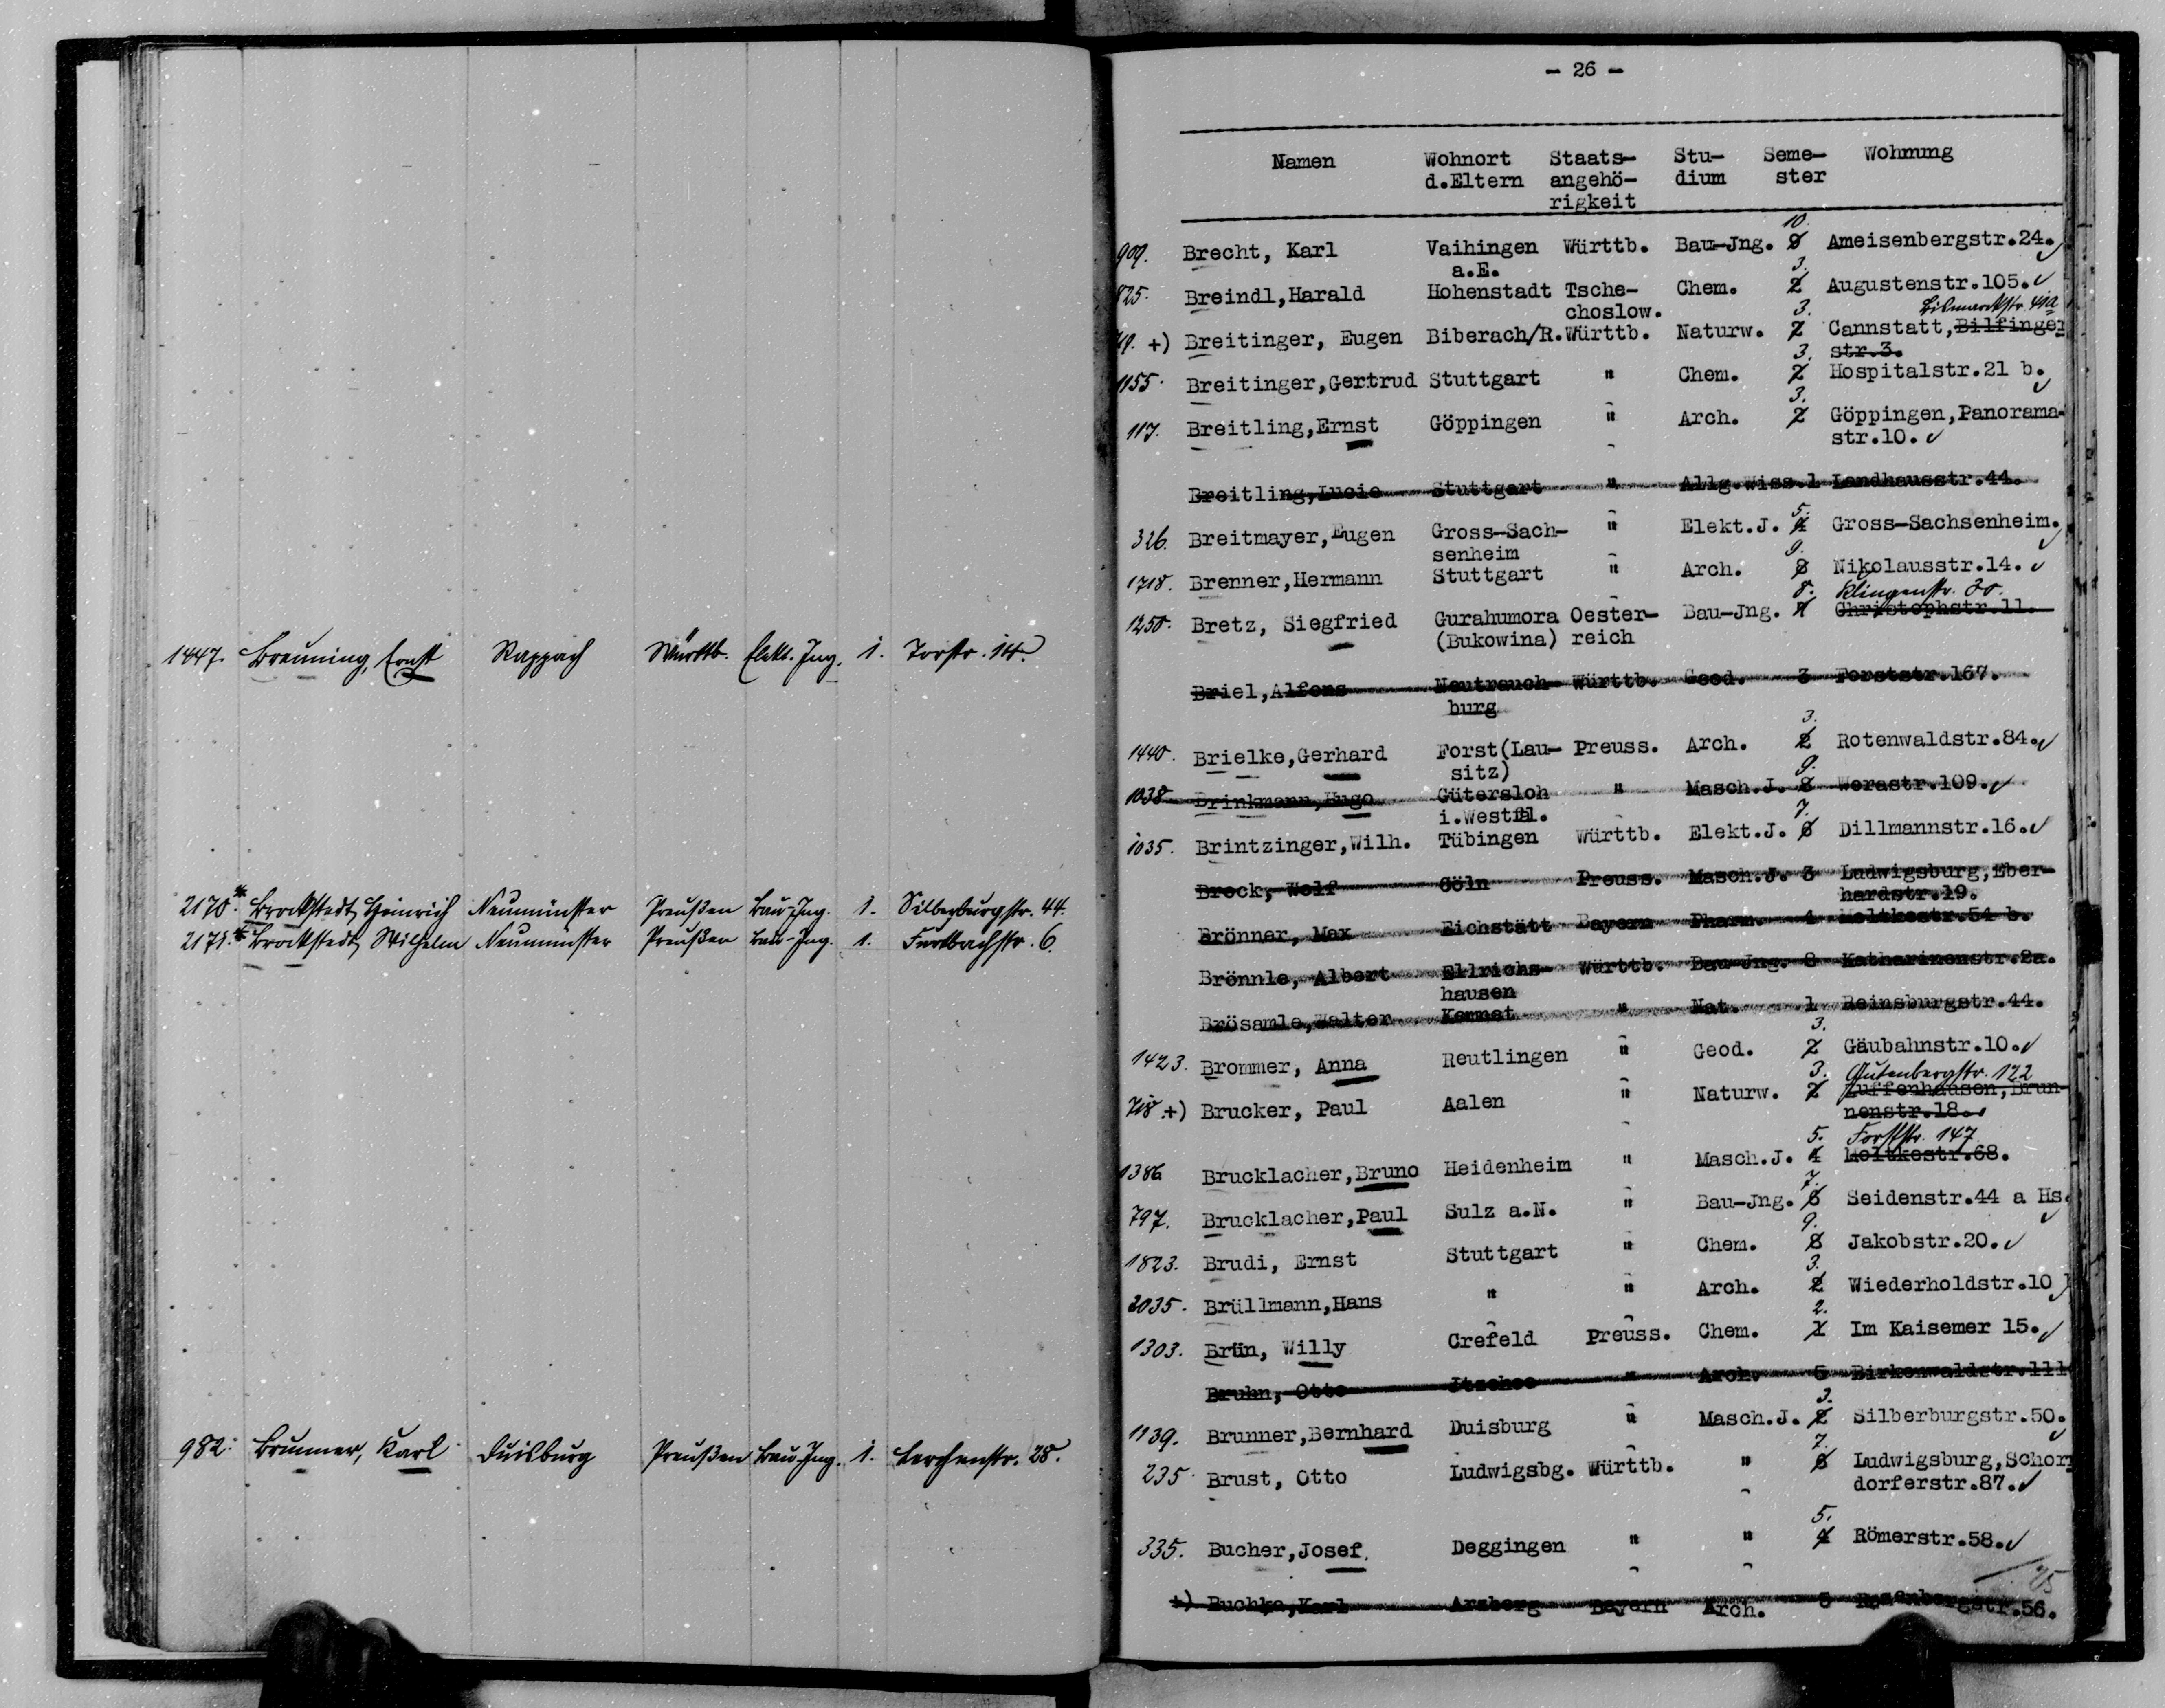 1447. Breuning, Ernst Rappach Württb. Elekt. Ing. 1. Torstr. 14.
2170.* Brockstedt, Heinrich Neumünster Preußen Bau-Ing. 1. Silberburgstr. 44.
2171.* Brockstedt, Wilhelm Neumünster Preußen Bau-Ing. 1. Furtbachstr. 6.
982. Brunner, Karl Duisburg Preußen Bau-Ing. 1. Lerchenstr. 28.
- 26 -
Namen Wohnort Staats- Stu- Seme- Wohnung
d.Eltern angehö- dium ster
rigkeit
10.
909. Brecht, Karl Vaihingen Württb. Bau-Jng. 9 Ameisenbergstr.24.
a.E. 3.
825. Breindl,Harald Hohenstadt Tsche- Chem. 2 Augustenstr.105.
choslow. 3. Bismarckstr. 41a
+) Breitinger, Eugen Biberach/R.Württb. Naturw. 2 Cannstatt,Bilfinger
3. str.3.
1155. Breitinger,Gertrud Stuttgart " Chem. 2 Hospitalstr.21 b.
3.
117. Breitling,Ernst Göppingen " Arch. 2 Göppingen,Panorama-
str.10.
Breitling,Lucie Stuttgart " Allg.Wiss.1 Landhausstr.44.
5.
326. Breitmayer,Eugen Gross-Sach- " Elekt.J. 4 Gross-Sachsenheim.
senheim 9.
1718. Brenner,Hermann Stuttgart " Arch. 8 Nikolausstr.14.
8. Klingenstr. 30.
1250. Bretz, Siegfried Gurahumora Oester- Bau-Jng. Christophstr.11.
(Bukowina) reich
Briel,Alfons Neutrauch- Württb. Geod. 3 Forststr.167.
burg
3.
1440. Brielke,Gerhard Forst(Lau- Preuss. Arch. 2 Rotenwaldstr.84.
sitz) 9.
1038 Brinkmann,Hugo Gütersloh " Masch.J. 8 Werastr.109.
i.Westfal. 7.
1035. Brintzinger,Wilh. Tübingen Württb. Elekt.J. 6 Dillmannstr.16.
Brock, Wolf Cöln Preuss. Masch.J. 3 Ludwigsburg,Eber-
hardstr.19.
Brönner, Max Eichstätt Bayern Pharm. 4 Moltkestr.54 b.
Brönnle, Albert Ellrichs- Württb. Bau-Jng. 8 Katharinenstr.2a.
hausen
Brösamle,Walter Kemnat " Nat. 1 Reinsburgstr.44.
3.
1423. Brommer, Anna Reutlingen " Geod. 2 Gäubahnstr.10.
3. Gutenbergstr. 122
718.+) Brucker, Paul Aalen " Naturw. 2 Zuffenhausen,Brun-
nenstr.18.
5. Forststr. 147
1386 Brucklacher,Bruno Heidenheim " Masch.J. 4 Moltkestr.68.
7.
797. Brucklacher,Paul Sulz a.N. " Bau-Jng. 6 Seidenstr.44 a Hs.
9.
1823. Brudi, Ernst Stuttgart " Chem. 8 Jakobstr.20.
3.
2035. Brüllmann,Hans " " Arch. 2 Wiederholdstr.10
2.
1303. Brün, Willy Crefeld Preuss. Chem. 1 Im Kaisemer 15.
Bruhn, Otto Jtzehoe " Arch. 5 Birkenwaldstr.111
3.
1139. Brunner,Bernhard Duisburg " Masch.J. 2 Silberburgstr.50.
7.
235. Brust, Otto Ludwigsbg. Württb. " 6 Ludwigsburg,Schorn
dorferstr.87.
5.
335. Bucher,Josef. Deggingen " " 4 Römerstr.58.
25
+) Buchka,Karl Arzberg Bayern Arch. 5 Rosenbergstr.56.